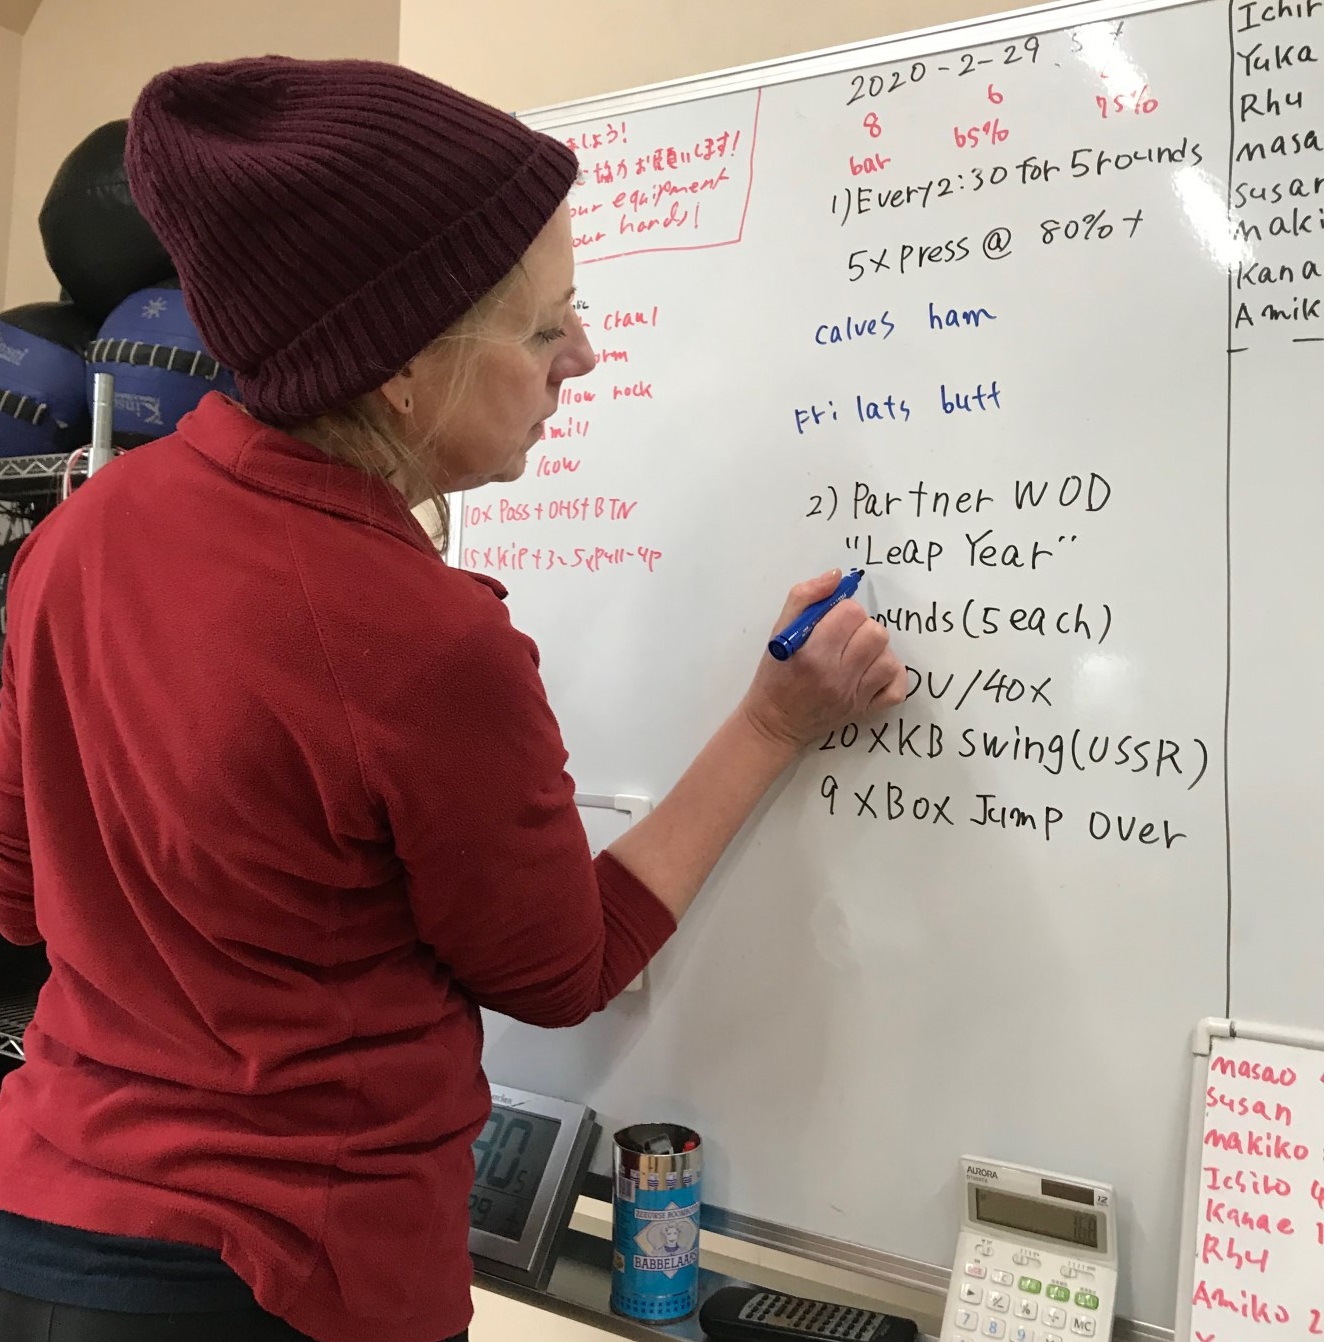 ましょう!
ご協力お願いします!
our equipment
our hands!
crawl
orm
llow rock
mill
/cow
10x Pass + OHS + BTN
15x Kip + 3~5x Pull-up
2020-2-29.
8 6 75%
bar 65%
1) Every 2:30 for 5 rounds
5x Press @ 80% +
calves ham
Fri lats butt
2) Partner WOD
"Leap Year"
ounds (5 each)
DU/40x
20 x KB Swing (USSR)
9 x Box Jump Over
Ichir
Yuka
Rhu
masa
Susan
maki
Kana
Amik
masao
Susan
makiko
Ichiro 4
Kanae 1
Rhu
Amiko 2
30s
29
ZEEUWSE BOERENBONT
BABBELAARS
AURORA
12
MC
7 8 9
Kins